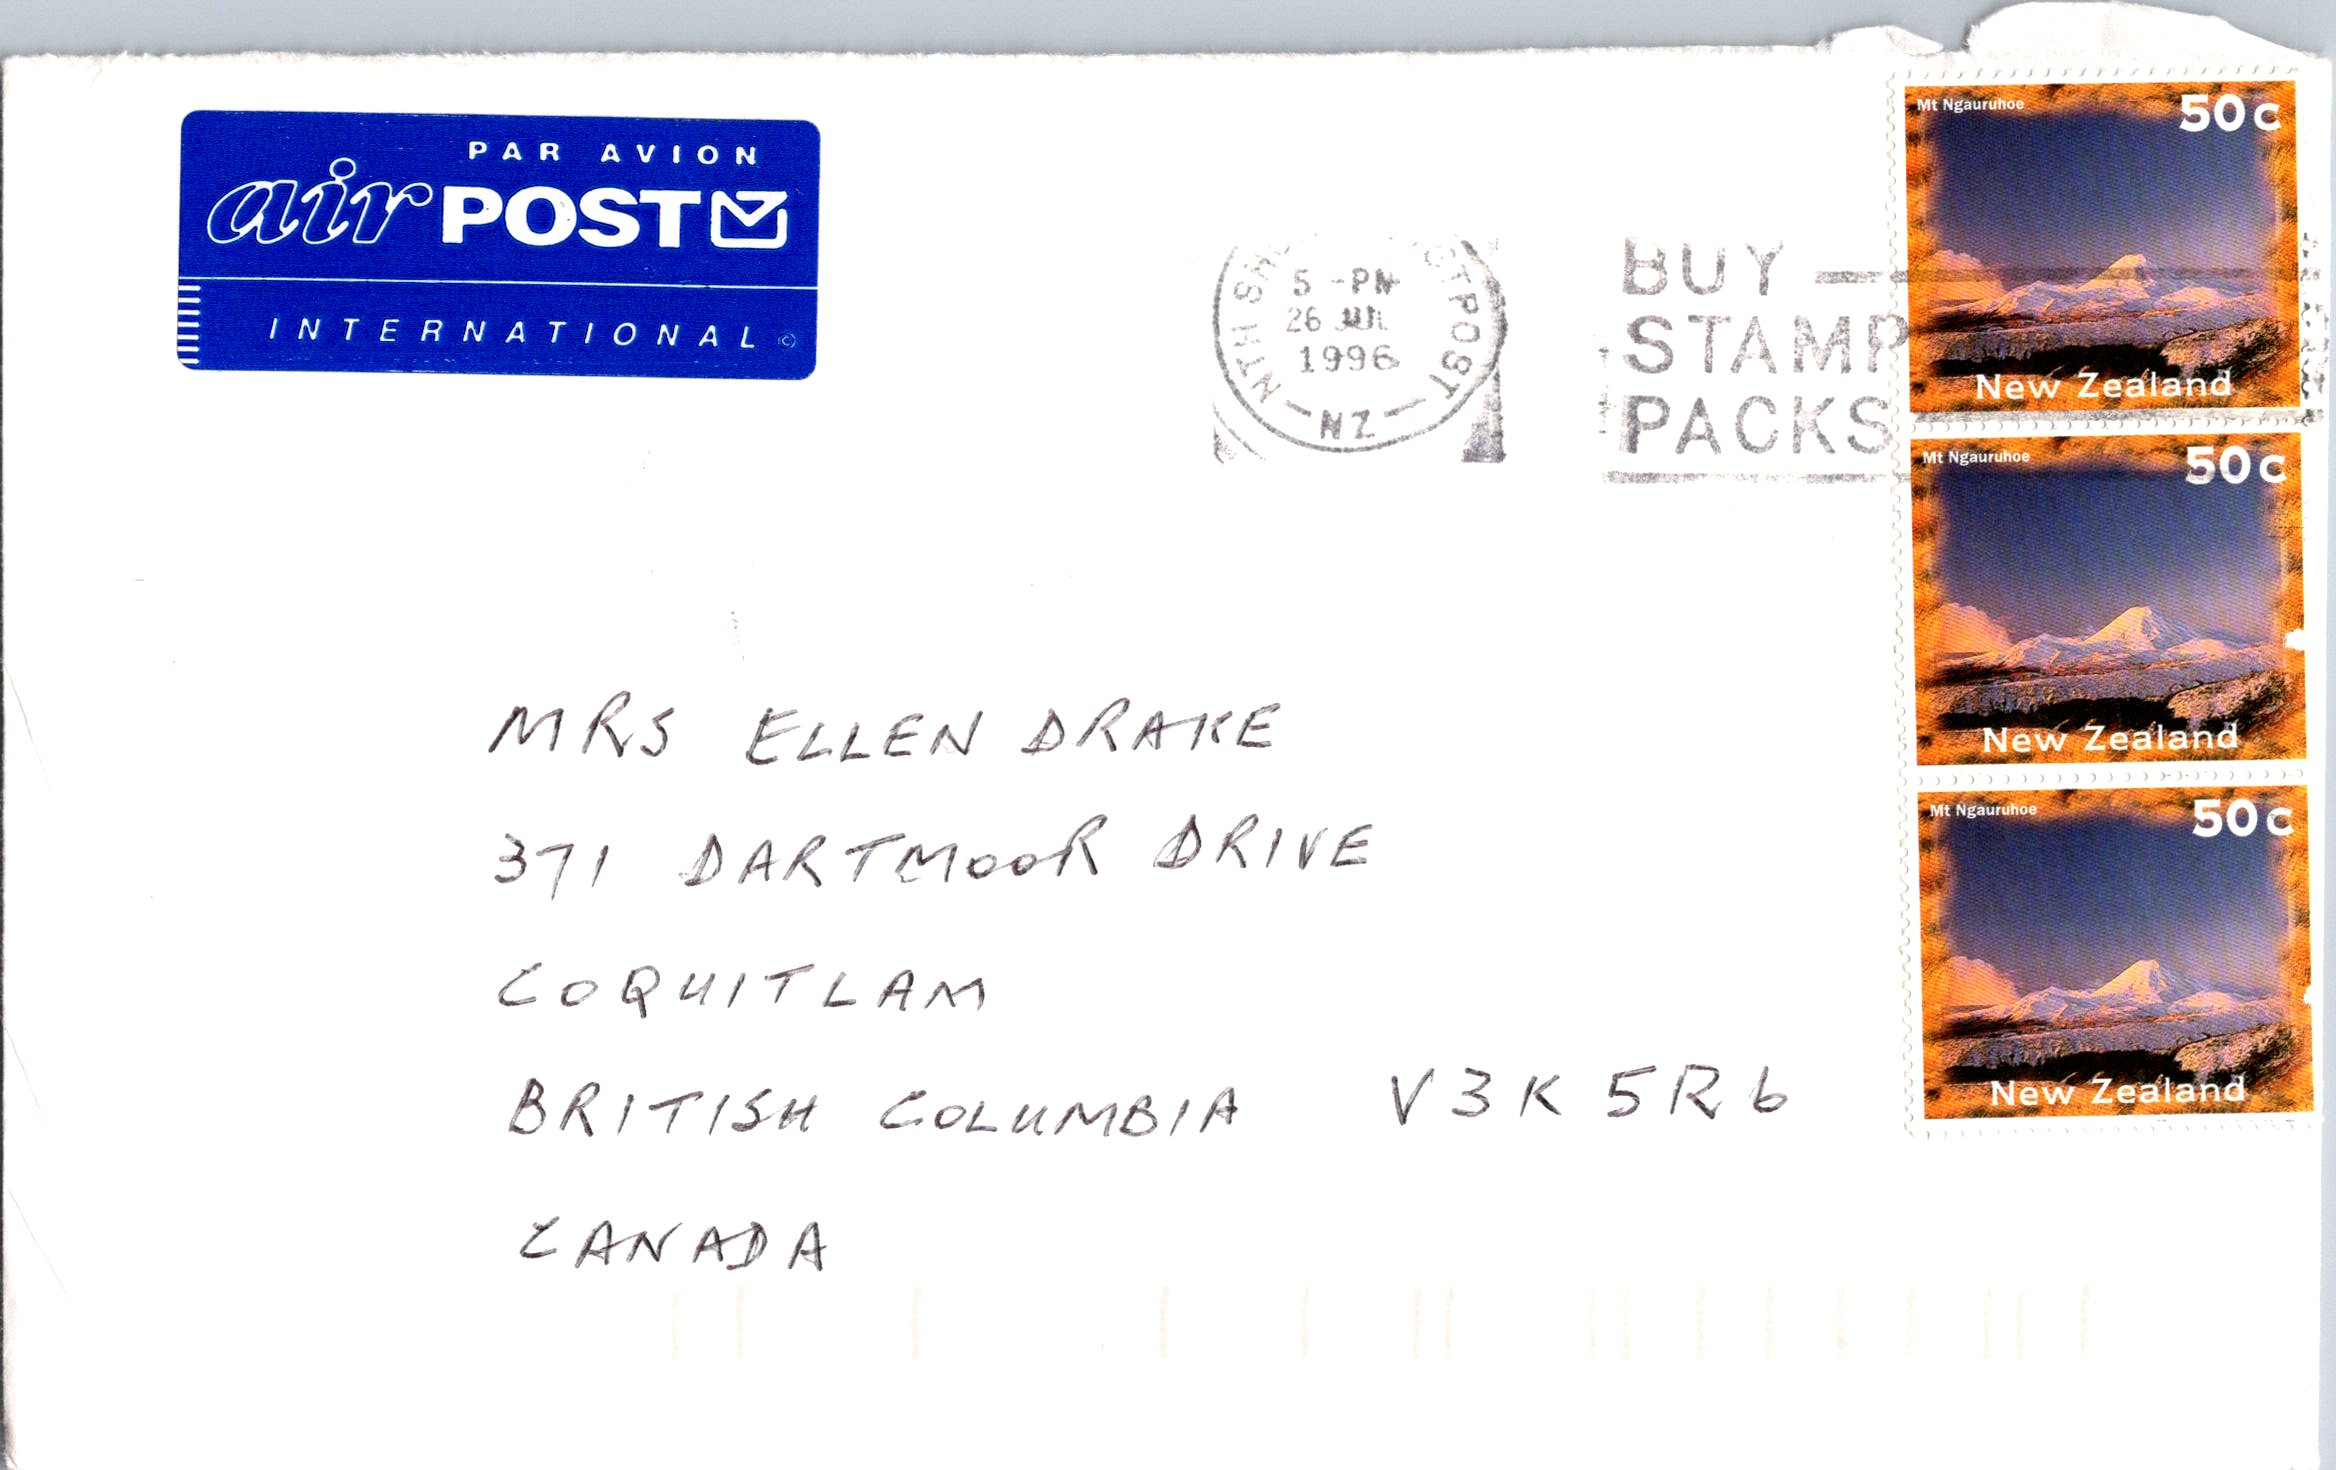 PAR AVION
air POST
INTERNATIONAL ©
NTH SH
STPOST
5 -PM
26 JUL
1996
NZ
BUY
STAMP
PACKS
Mt Ngauruhoe 50c
New Zealand
Mt Ngauruhoe 50c
New Zealand
Mt Ngauruhoe 50c
New Zealand
MRS ELLEN DRAKE
371 DARTMOOR DRIVE
COQUITLAM
BRITISH COLUMBIA V3K 5R6
CANADA